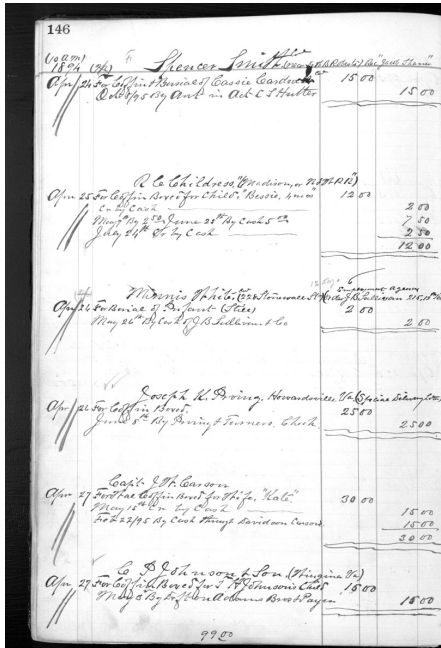 146
(10 am)
1894 (2/4) Spencer Smith
Apr 24 For Coffin & Burial of Cassie 15 00
Oct 8/95 By Amt in Act C S Hutter 15 00
R C Childress, "(Madison, or N & W R R)
Apr 25 For Coffin Boxed for Child, "Bessie, 4 mos" 12 00
Cr by Cash 2 00
May 9th By 2 50 June 22d By Cash 5 00 7 50
July 24th Cr by Cash 2 50
12 00
Minnis White (228 Stonewall St)
Apr 26 For Burial of Infant 2 00
May 26th By Cash of J B Sullivan & Co 2 00
Joseph K. Irving, Howardsville, Va (Special Delivery
Apr 26 For Coffin Boxed. 25 00
June 8th By Irving & Turners, Check 25 00
Capt J W Carson
Apr 27 For Coffin Boxed for Wife, "Kate" 30 00
May 15th Cr by Cash 15 00
Feb 22/95 By Cash through Davidson Carson 15 00
30 00
C P Johnson & Son, (Wingina Va)
Apr 27 For Coffin Boxed for Johnson's Child 15 00
May 8 By Adams Bros & Payne 15 00
99 00